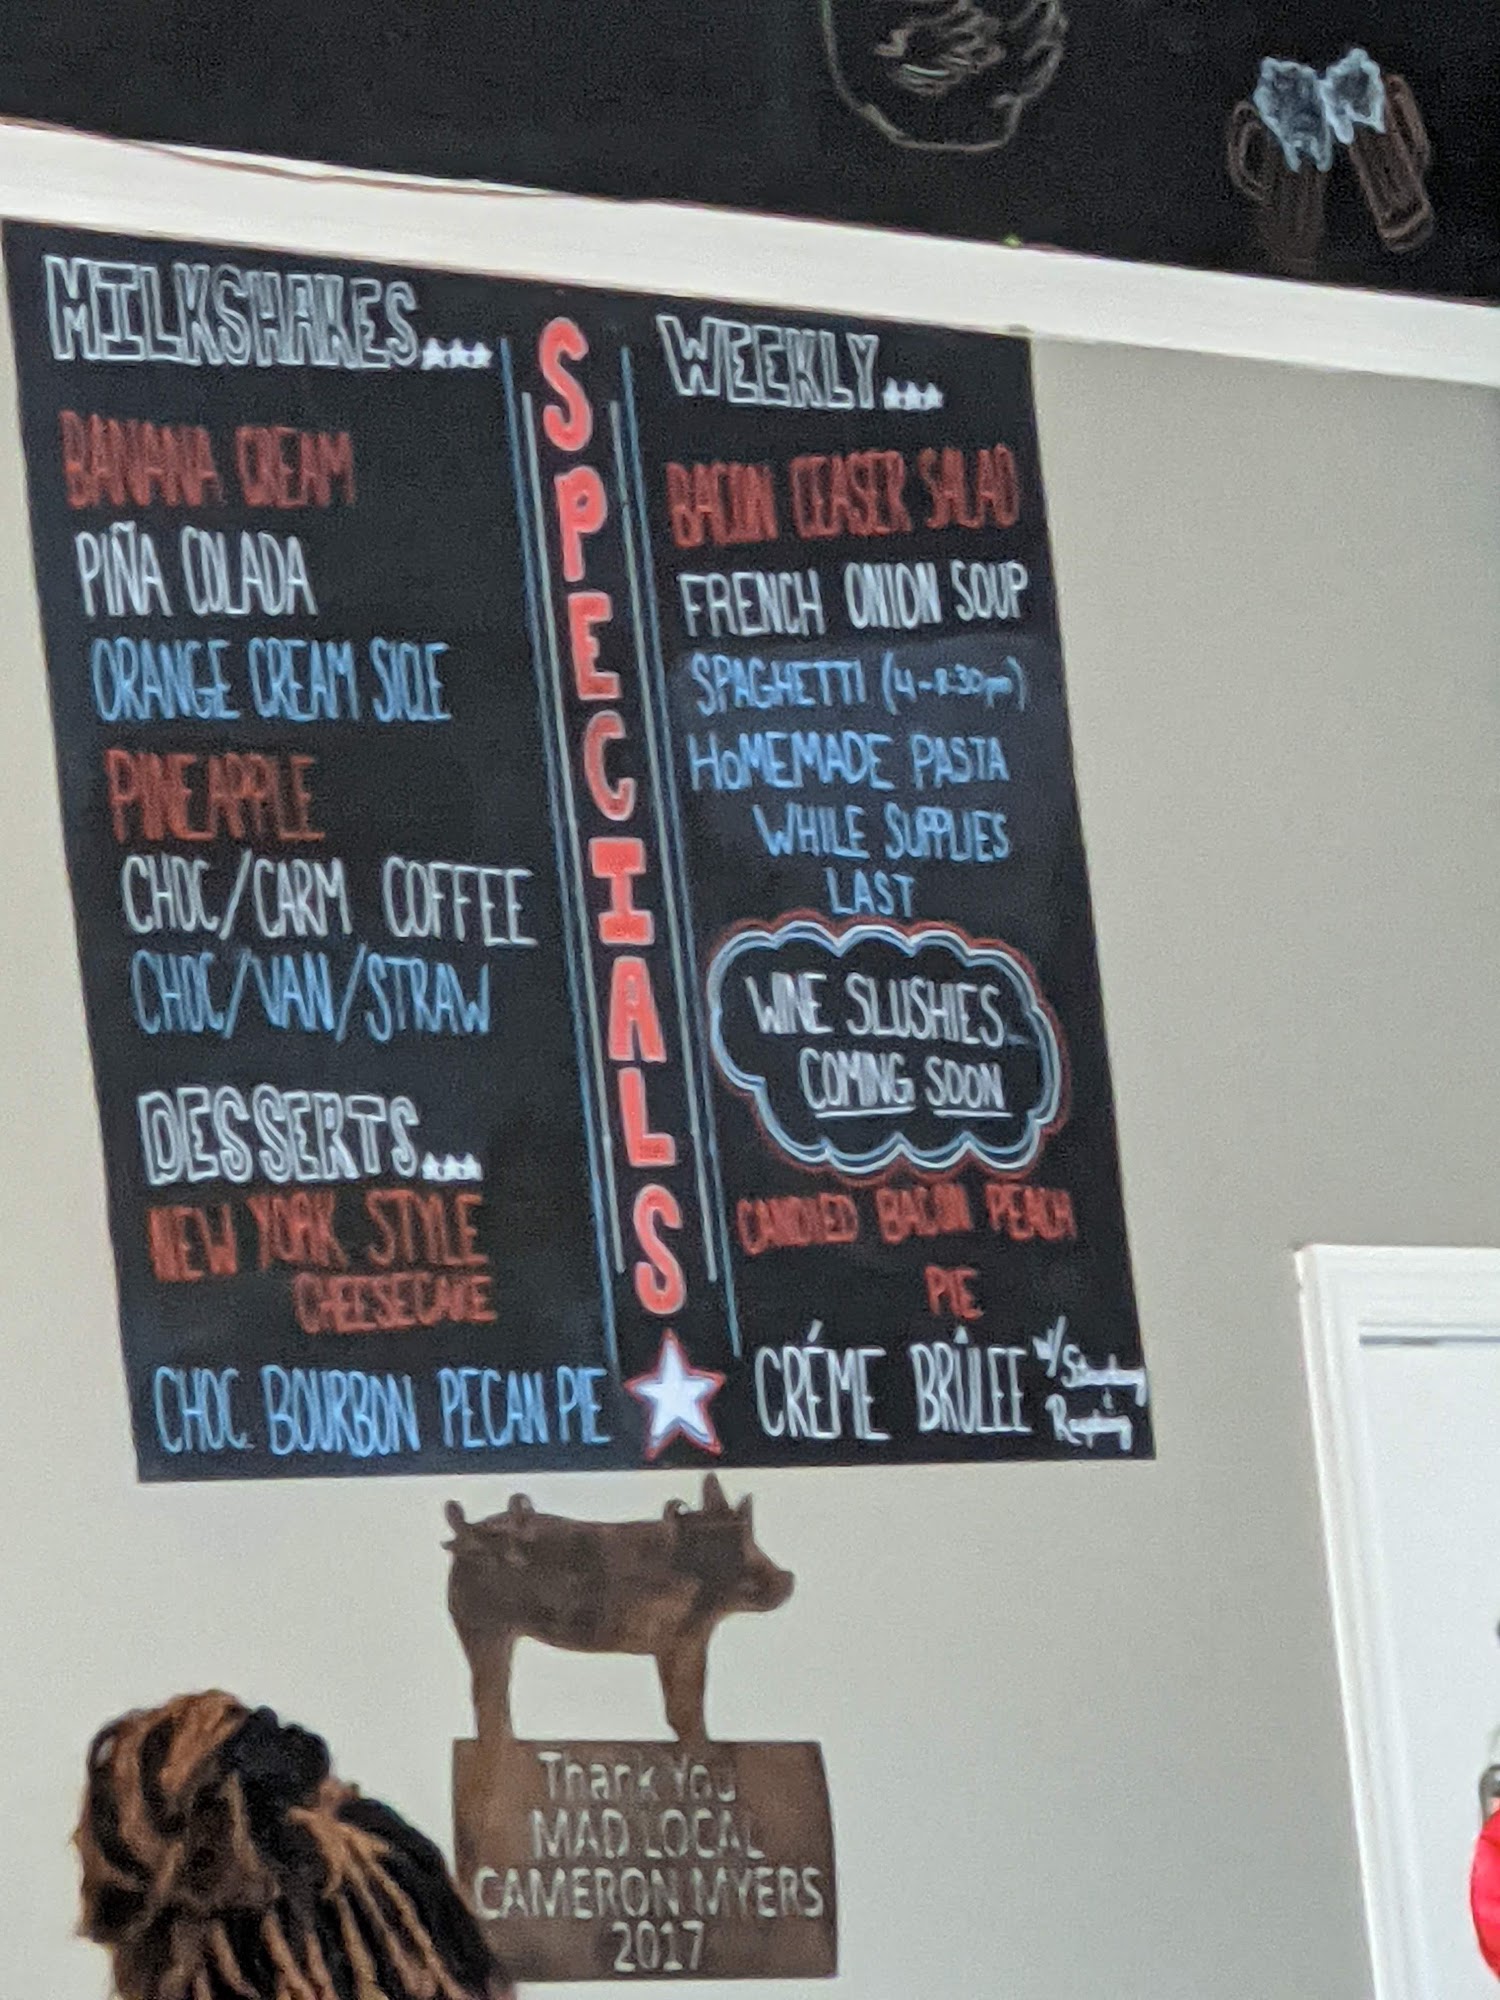 MILKSHAKES...
BANANA CREAM
PIÑA COLADA
ORANGE CREAM SICLE
PINEAPPLE
CHOC/CARM COFFEE
CHOC/VAN/STRAW
DESSERTS...
NEW YORK STYLE
CHEESECAKE
CHOC BOURBON PECAN PIE
SPECIALS
WEEKLY...
BACON CEASER SALAD
FRENCH ONION SOUP
SPAGHETTI (4-8:30pm)
HOMEMADE PASTA
WHILE SUPPLIES
LAST
WINE SLUSHIES...
COMING SOON
CANDIED BACON PEACH
PIE
CRÉME BRÛLEE w/
Thank You
MAD LOCAL
CAMERON MYERS
2017